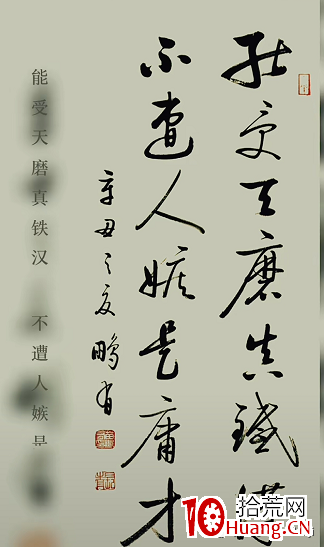 能受天磨真鐵漢
不遭人嫉是庸才
辛丑之夏鵬
能受天磨真铁汉 不遭人嫉是
10 拾荒网
Huang.CN